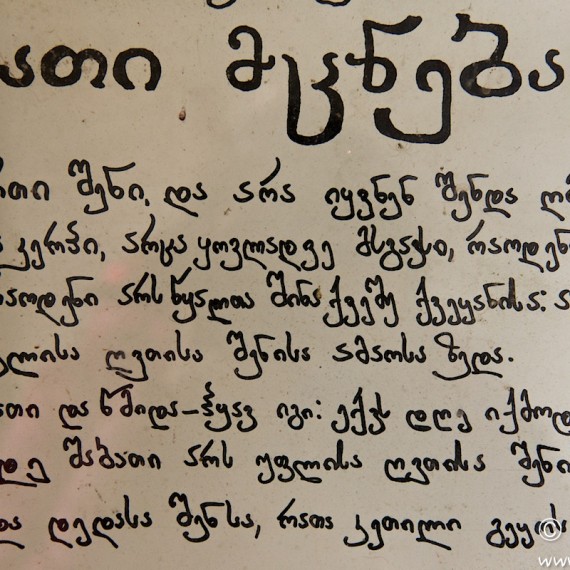 ათი მცნება
რთი შენი, და არა იყვნენ შენდა
კერპი, არცა ყოვლადვე მსგავსი, რაოდენ
რაოდენი არს წყალთა შინა ქვეშე ქვეყანისა:
უფლისა ღვთისა შენისა ამაოსა ზედა.
ათი და წმიდა-ჰყავ იგი: ექვს დღე იქმოდ
დღე შაბათი არს უფლისა ღვთისა შენი
და დედასა შენსა, რათა კეთილი გეყოს
©
www.